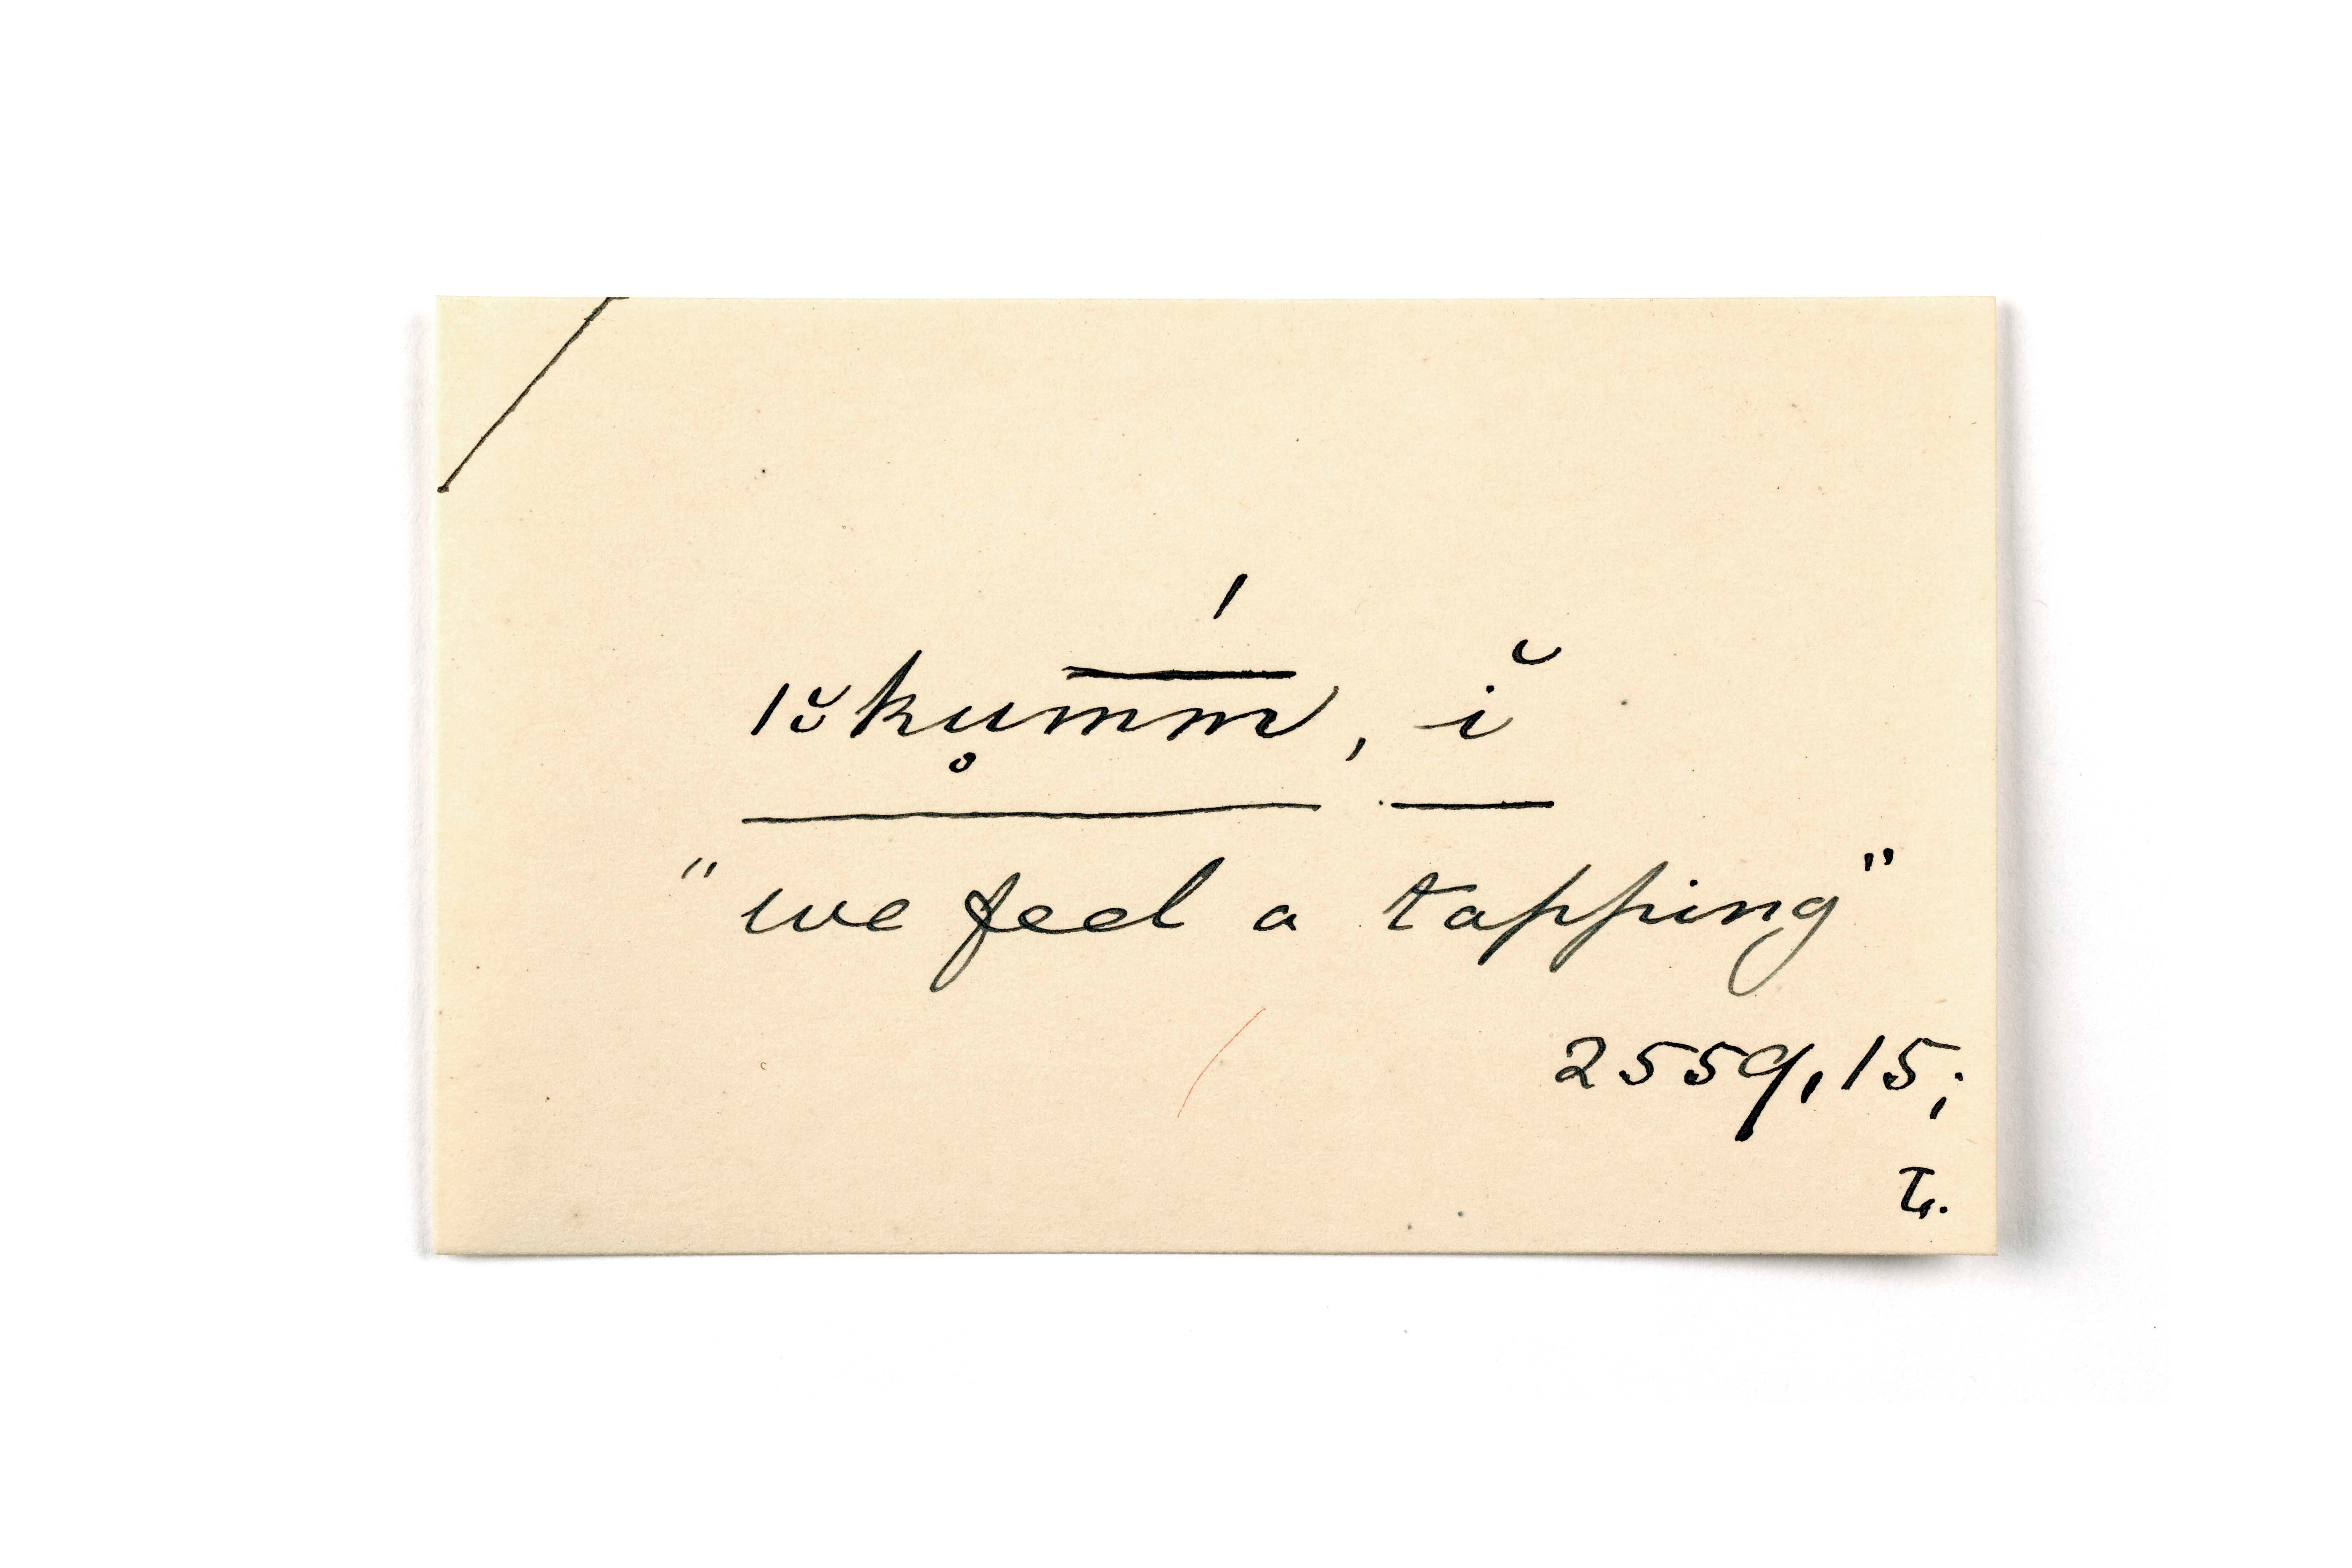 /ŏkụm̅m̅́, ĭ
"we feel a tapping"
2559,15;